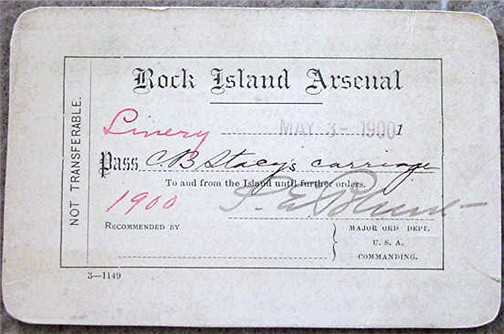 Rock Island Arsenal
Livery MAY 3- 1900 1
Pass C B Stacy's carriage
To and from the Island until further orders.
1900
RECOMMENDED BY
MAJOR ORD DEPT.
U. S. A.
COMMANDING.
NOT TRANSFERABLE.
3—1149